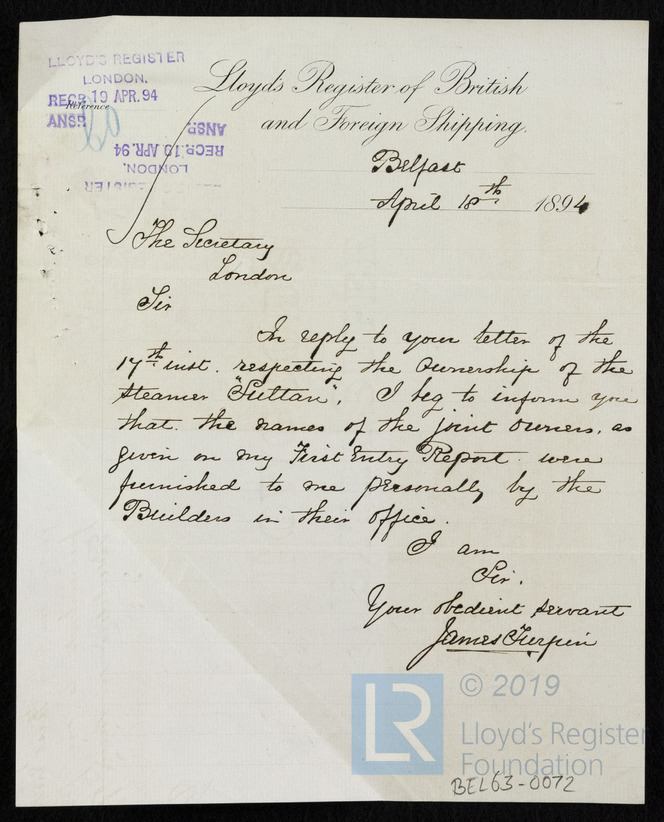 LLOYD'S REGISTER
LONDON.
RECD. 19 APR. 94
Reference
ANSD
Lloyd's Register of British
and Foreign Shipping.
ANSD
RECD. 19 APR. 94
LONDON.
REGISTER
Belfast
April 18th 1894
The Secretary
London
Sir
In reply to your letter of the
17th inst. respecting the Ownership of the
steamer "Sultan", I beg to inform you
that the names of the joint owners, as
given on my First Entry Report were
furnished to me personally by the
Builders in their office.
I am
Sir,
Your obedient servant
James Turpin
LR
© 2019
Lloyd's Register
Foundation
BEL63-0072